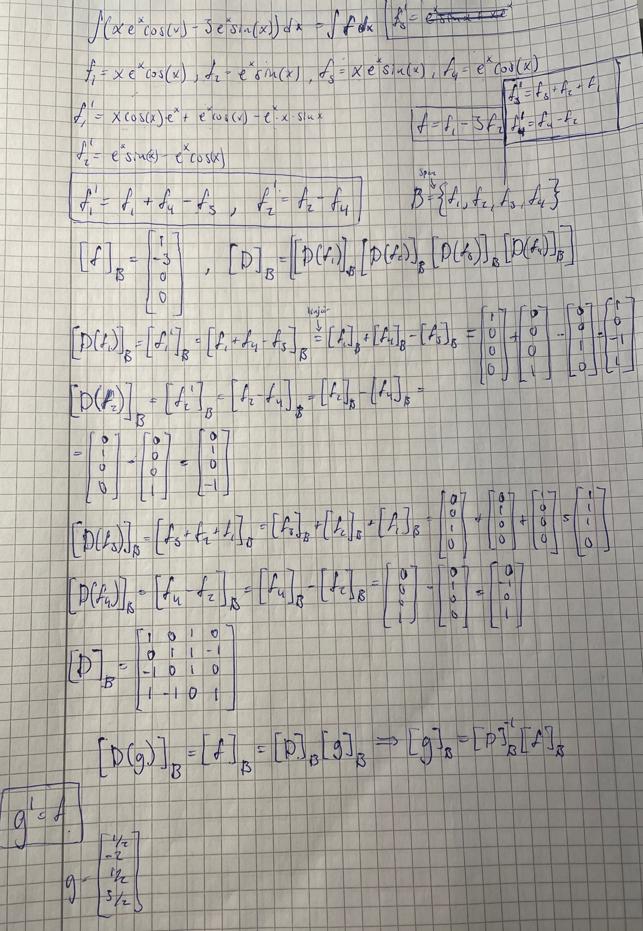 ∫(xeˣcos(x) - 3eˣsin(x))dx = ∫f dx
f₁ = xeˣcos(x), f₂ = eˣsin(x), f₃ = xeˣsin(x), f₄ = eˣcos(x)
f₃' = f₃ + f₂ + f₁
f₁' = xcos(x)eˣ + eˣcos(x) - eˣ·x·sinx
f = f₁ - 3f₂
f₄' = f₄ - f₂
f₂' = eˣsin(x) - eˣcos(x)
f₁' = f₁ + f₄ - f₃ , f₂' = f₂ - f₄
Span
B = {f₁, f₂, f₃, f₄}
[f]_B = [1 -3 0 0] , [D]_B = [[D(f₁)]_B [D(f₂)]_B [D(f₃)]_B [D(f₄)]_B]
[D(f₁)]_B = [f₁']_B = [f₁ + f₄ - f₃]_B = [f₁]_B + [f₄]_B - [f₃]_B = [1 0 0 0] + [0 0 0 1] - [0 0 1 0] = [1 0 -1 1]
[D(f₂)]_B = [f₂']_B = [f₂ - f₄]_B = [f₂]_B - [f₄]_B =
= [0 1 0 0] - [0 0 0 1] = [0 1 0 -1]
[D(f₃)]_B = [f₃ + f₂ + f₁]_B = [f₃]_B + [f₂]_B + [f₁]_B = [0 0 1 0] + [0 1 0 0] + [1 0 0 0] = [1 1 1 0]
[D(f₄)]_B = [f₄ - f₂]_B = [f₄]_B - [f₂]_B = [0 0 0 1] - [0 1 0 0] = [0 -1 0 1]
[D]_B = [1 0 1 0
0 1 1 -1
-1 0 1 0
1 -1 0 1]
[D(g)]_B = [f]_B = [D]_B [g]_B ⟹ [g]_B = [D]⁻¹_B [f]_B
g' = f
g = [1/2 -2 1/2 3/2]